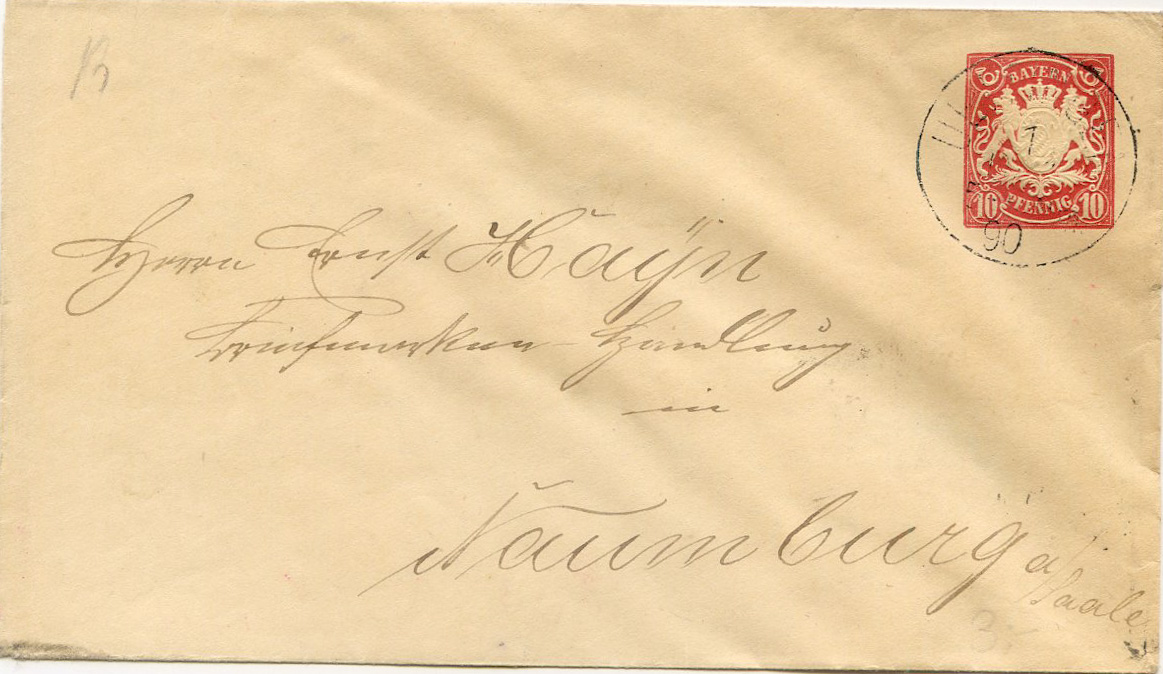 BAYERN
7
10 PFENNIG 10
90
Herrn Ernst Hayn
Briefmarken-Handlung
in
Naumburg a/Saale